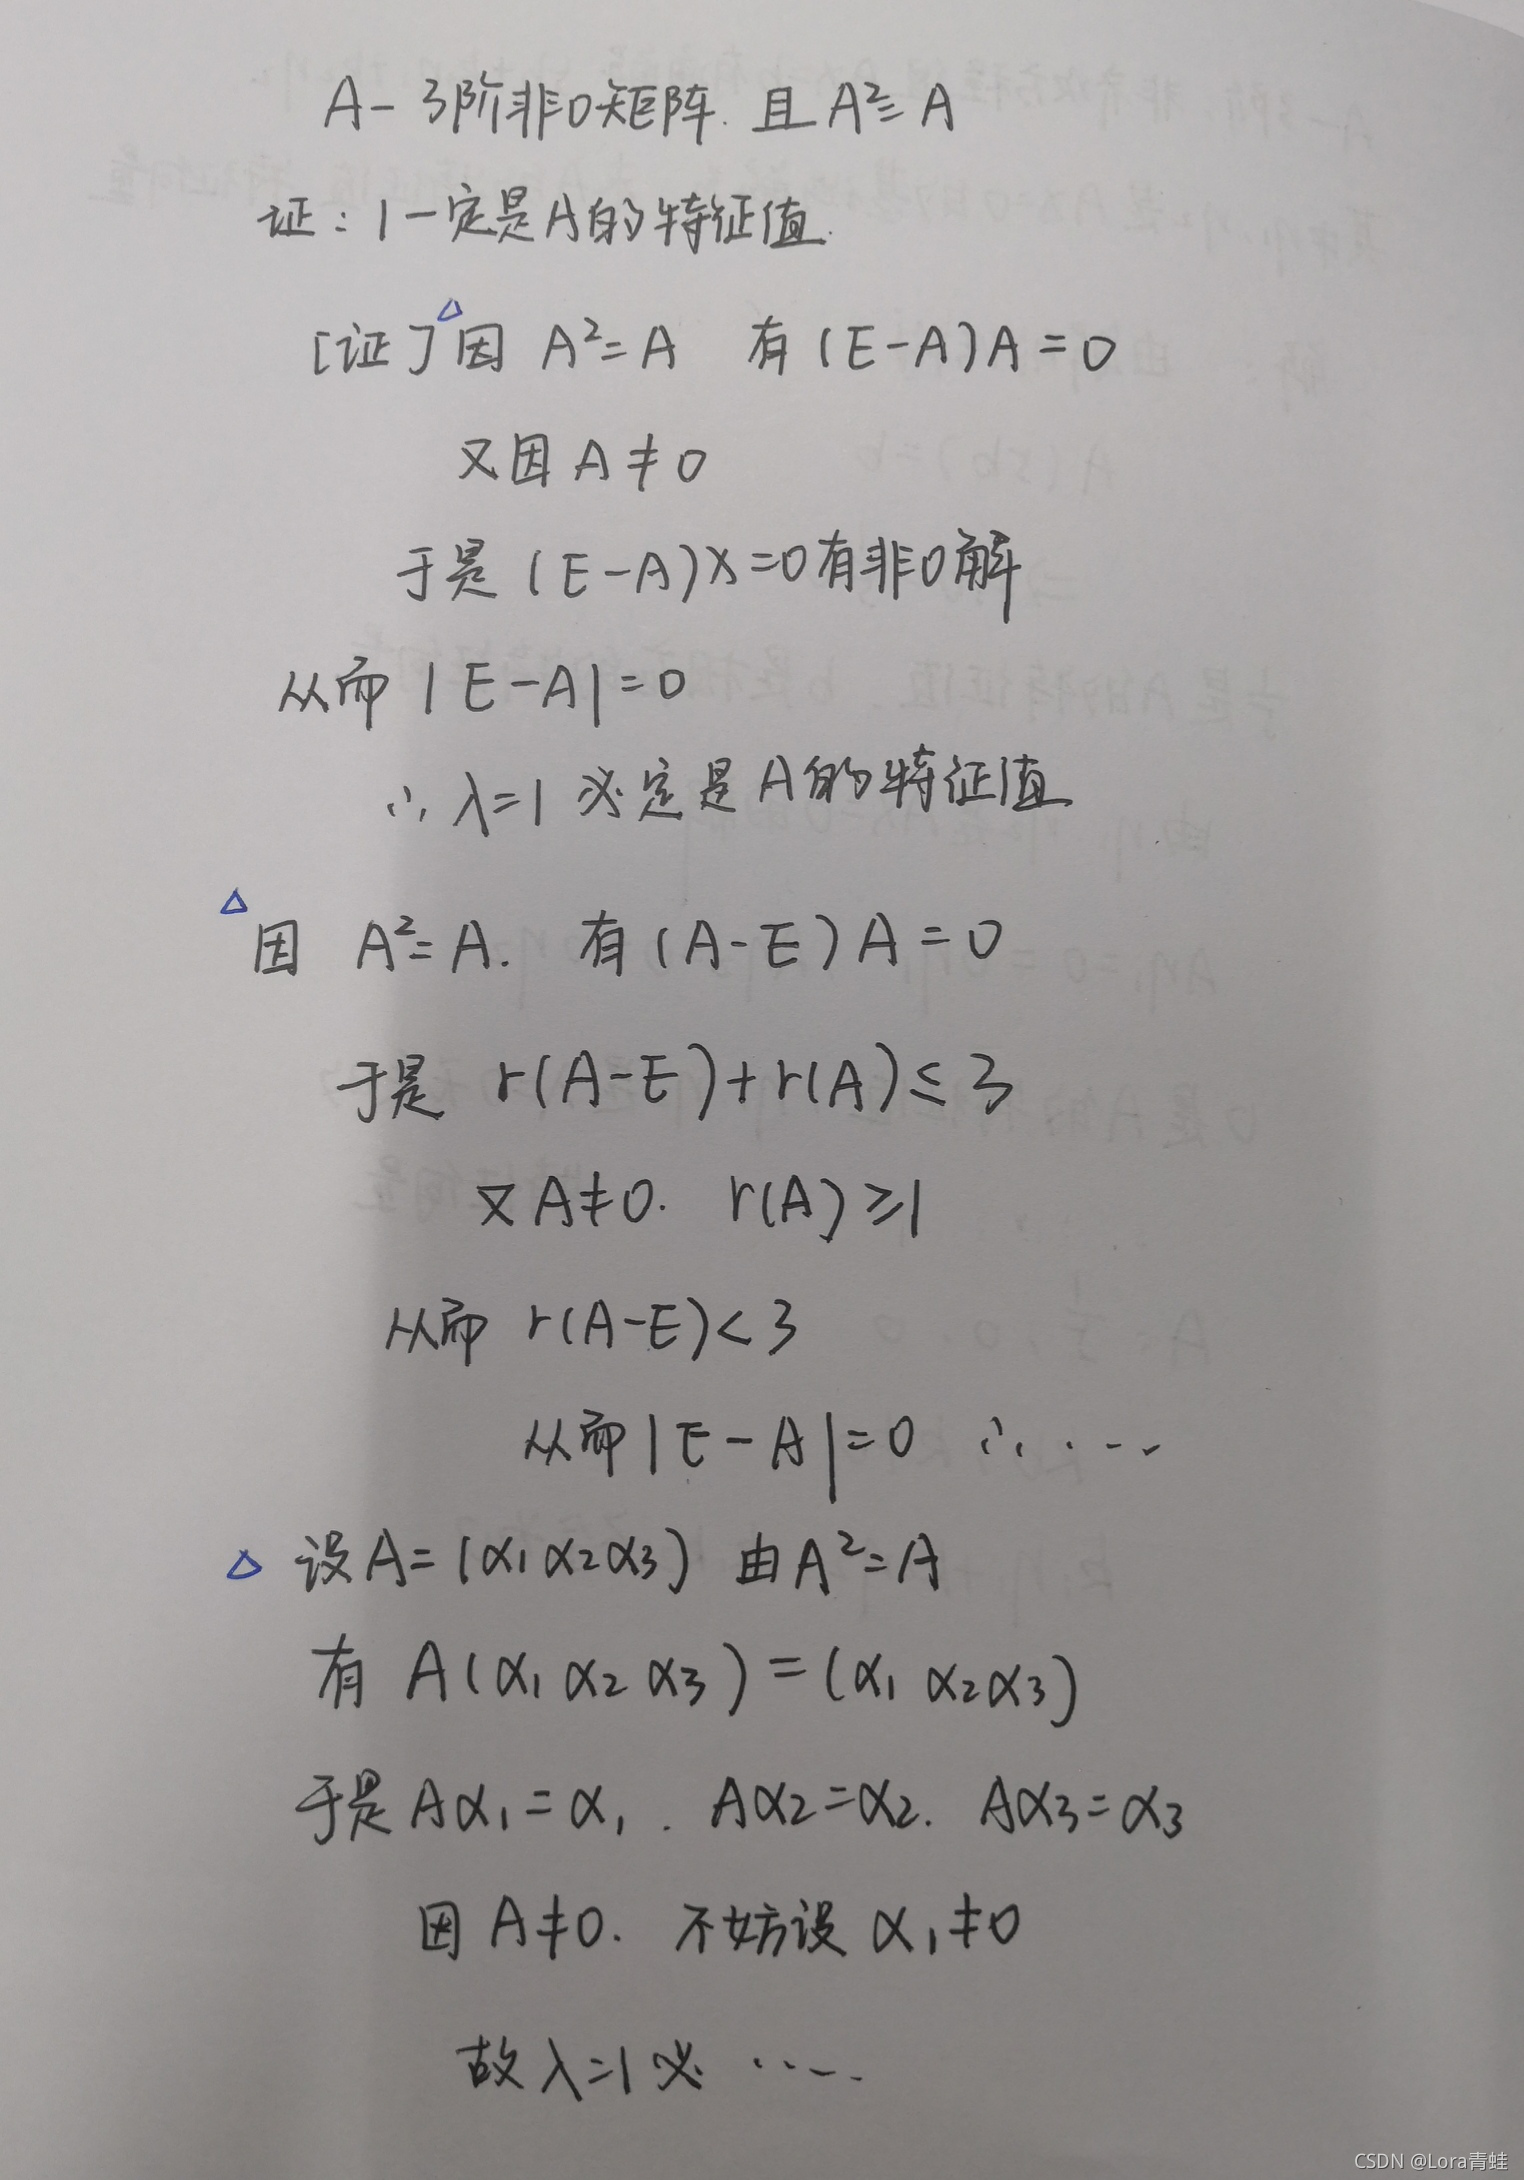 A-3阶非0矩阵.且A²=A
证:1一定是A的特征值.
[证]△因 A²=A 有(E-A)A=0
又因A≠0
于是(E-A)x=0有非0解
从而|E-A|=0
∴λ=1必定是A的特征值
△因 A²=A. 有(A-E)A=0
于是 r(A-E)+r(A)≤3
又A≠0. r(A)≥1
从而 r(A-E)<3
从而|E-A|=0 ∴.....
△设A=(α₁ α₂ α₃) 由A²=A
有 A(α₁ α₂ α₃)=(α₁ α₂ α₃)
于是Aα₁=α₁. Aα₂=α₂. Aα₃=α₃
因A≠0. 不妨设α₁≠0
故λ=1必.....
CSDN @Lora青蛙